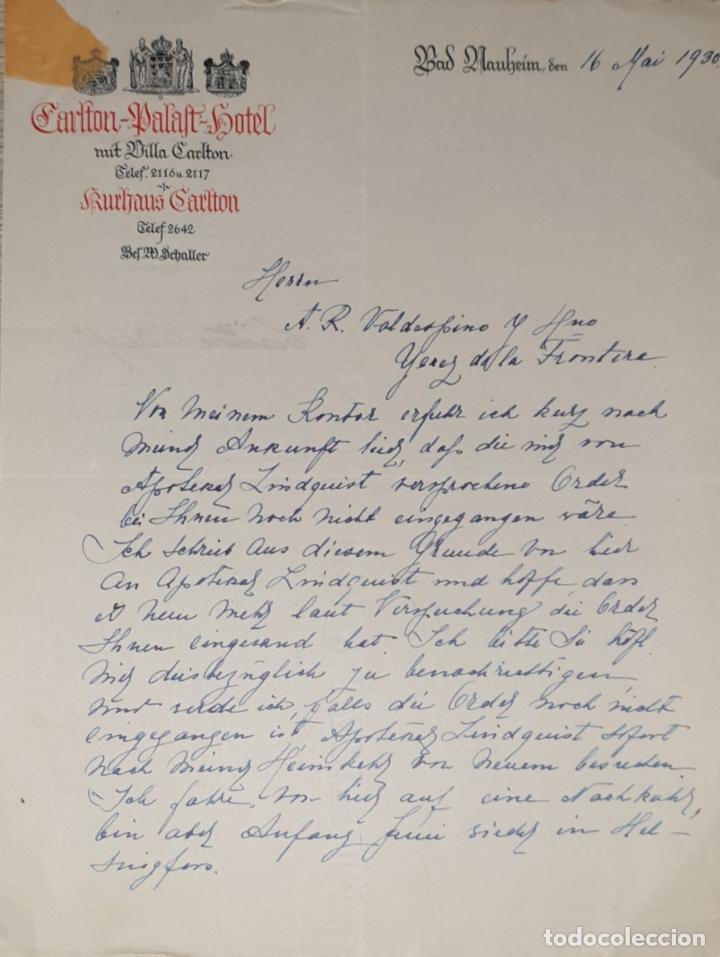 Bad Nauheim, den 16 Mai 1930
Carlton-Palast-Hotel
mit Villa Carlton
Telef. 2116 u. 2117
Kurhaus Carlton
Telef 2642
Bes. W Schaller
Herrn
A. R. Valdespino y Hno
Yerez de la Frontera.
Von meinem Kontor erfuhr ich kurz nach
meiner Ankunft hier, dass die mir von
Apoteker Lindquist versprochene Order
bei Ihnen noch nicht eingegangen wäre
Ich schrieb aus diesem Grunde von hier
an Apoteker Lindquist und hoffe, dass
er nun mehr laut Versprechung die Order
Ihnen eingesand hat. Ich bitte Sie höfl.
mich diesbezüglich zu benachrichtigen,
und werde ich, falls die Order noch nicht
eingegangen ist Apoteker Lindquist sofort
nach meiner Heimkehr von neuem besuchen.
Ich fahre von hier auf eine Nachkuhr,
bin aber Anfang Juni wieder in Hel-
singfors.
todocoleccion.net